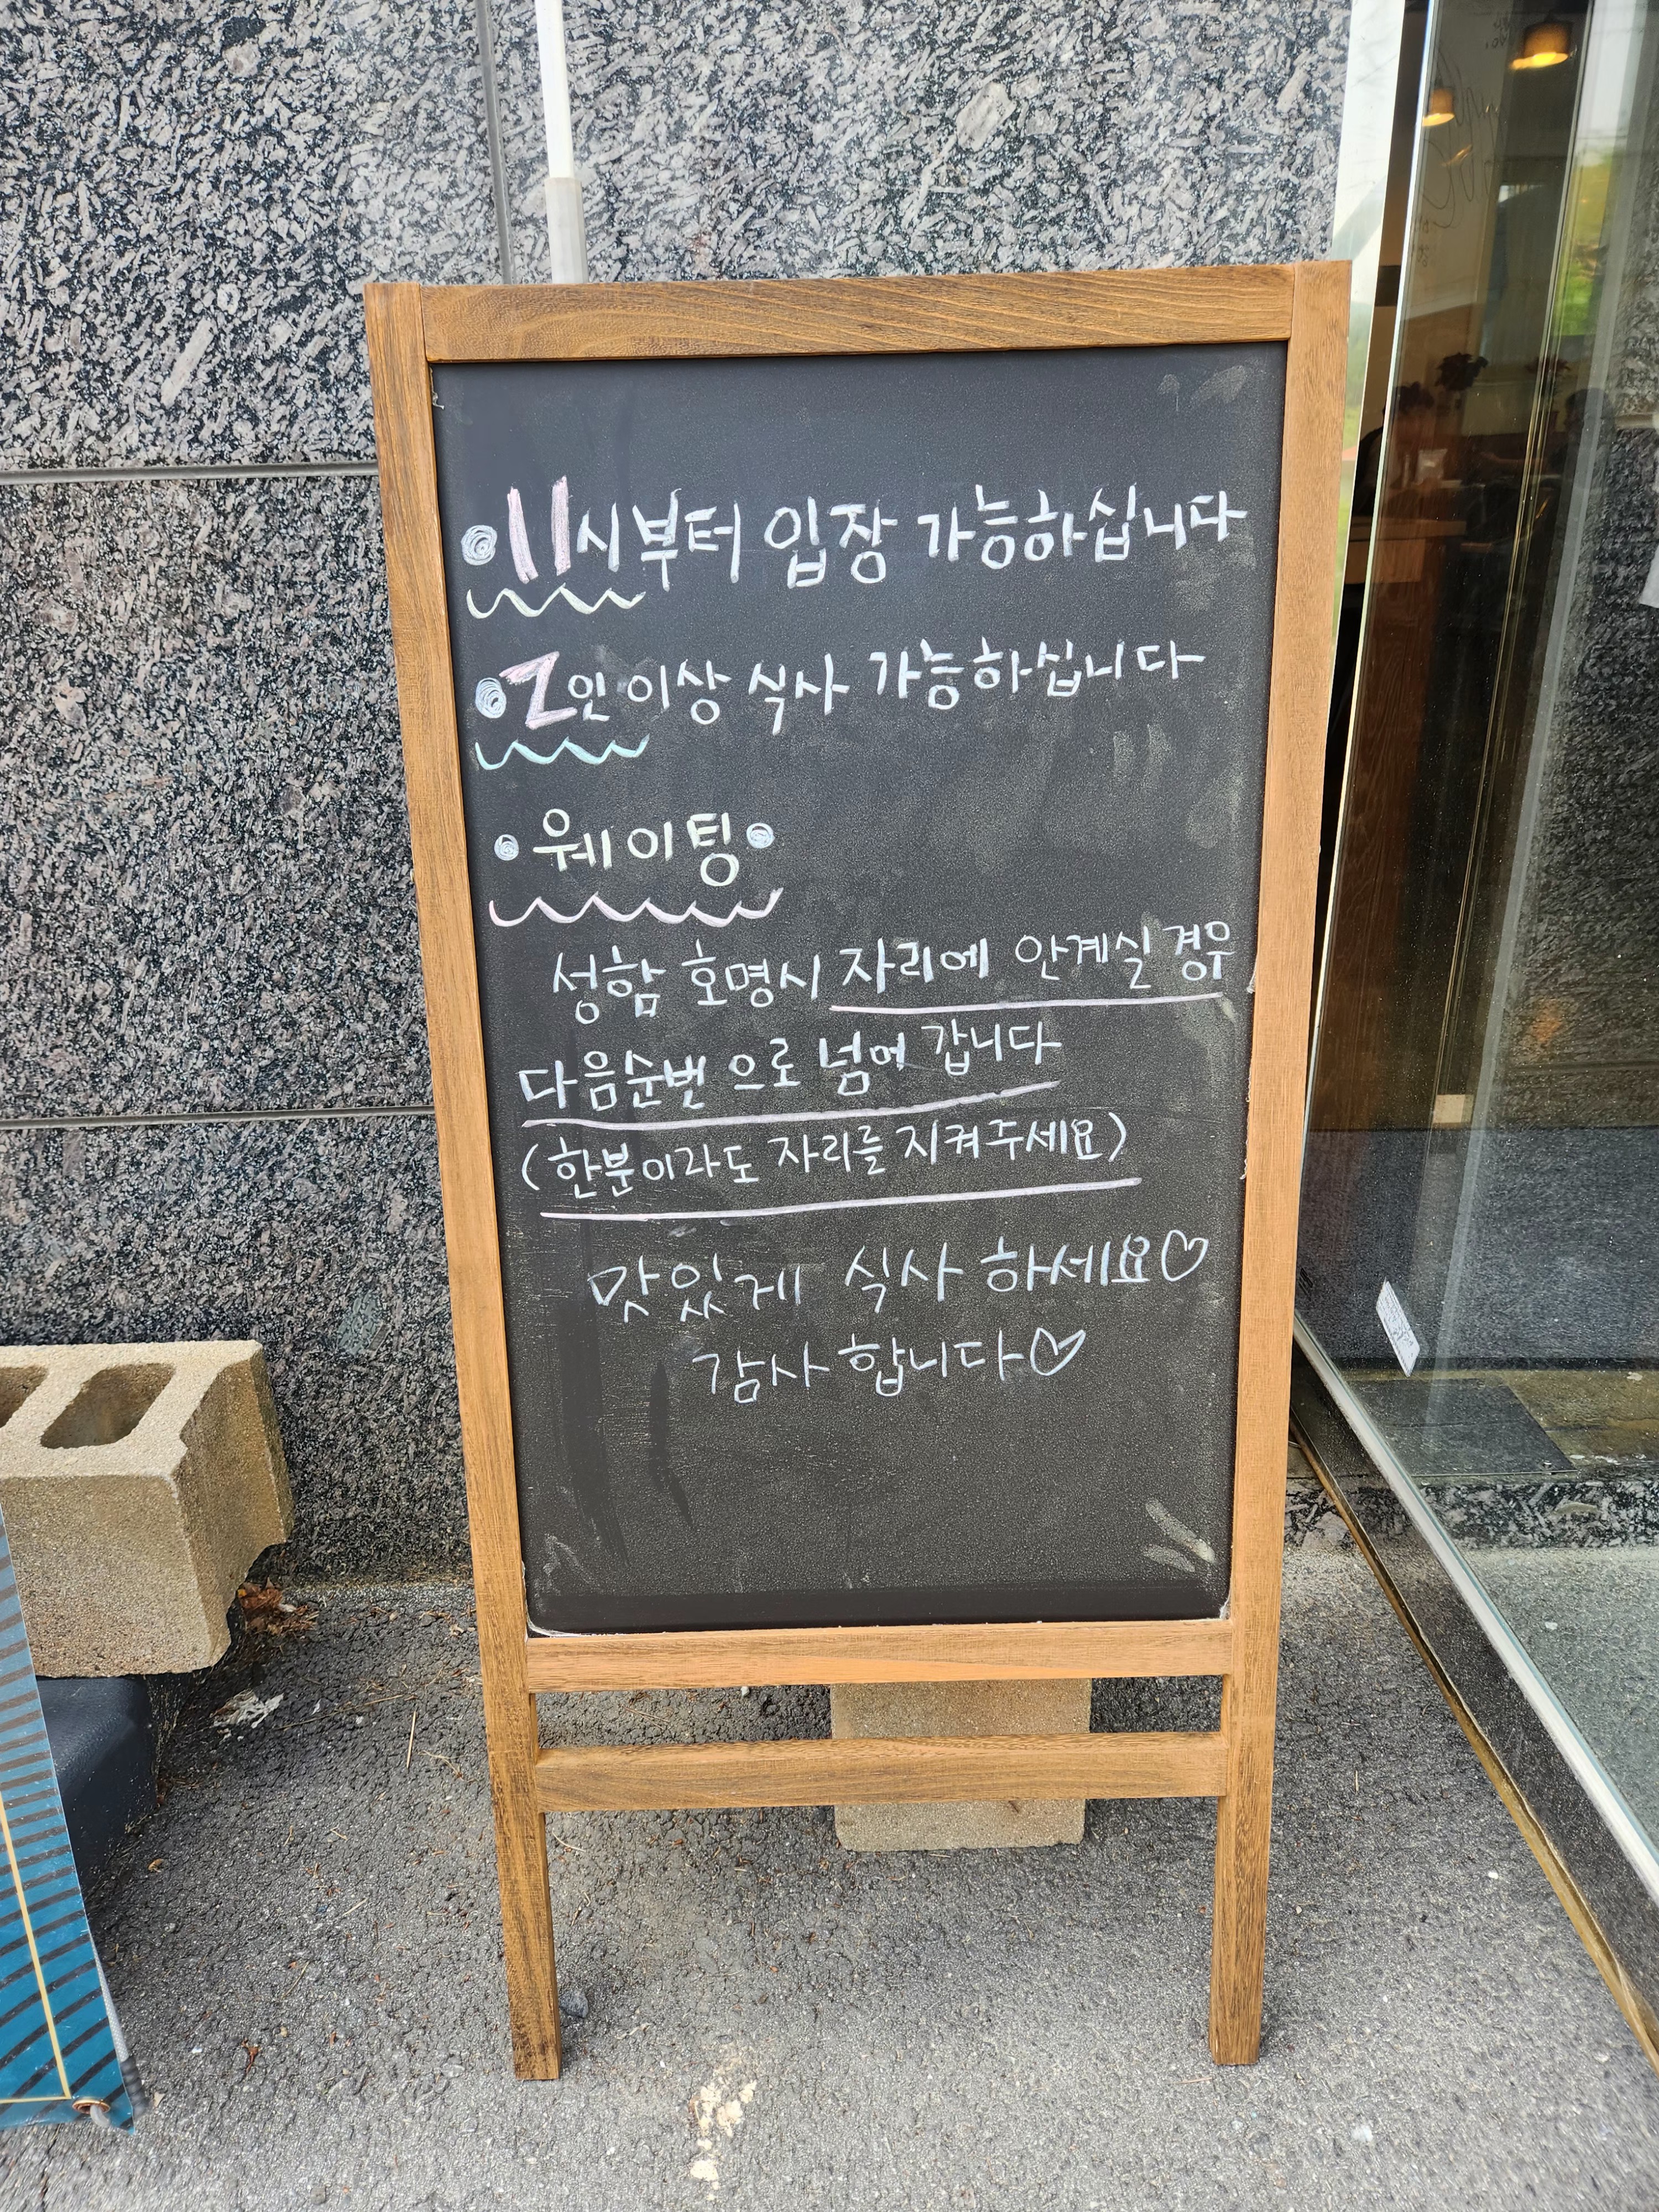 •11시부터 입장 가능하십니다
•2인 이상 식사 가능하십니다
•웨이팅•
성함 호명시 자리에 안계실 경우
다음순번 으로 넘어 갑니다
(한분이라도 자리를 지켜주세요)
맛있게 식사 하세요♡
감사 합니다♡